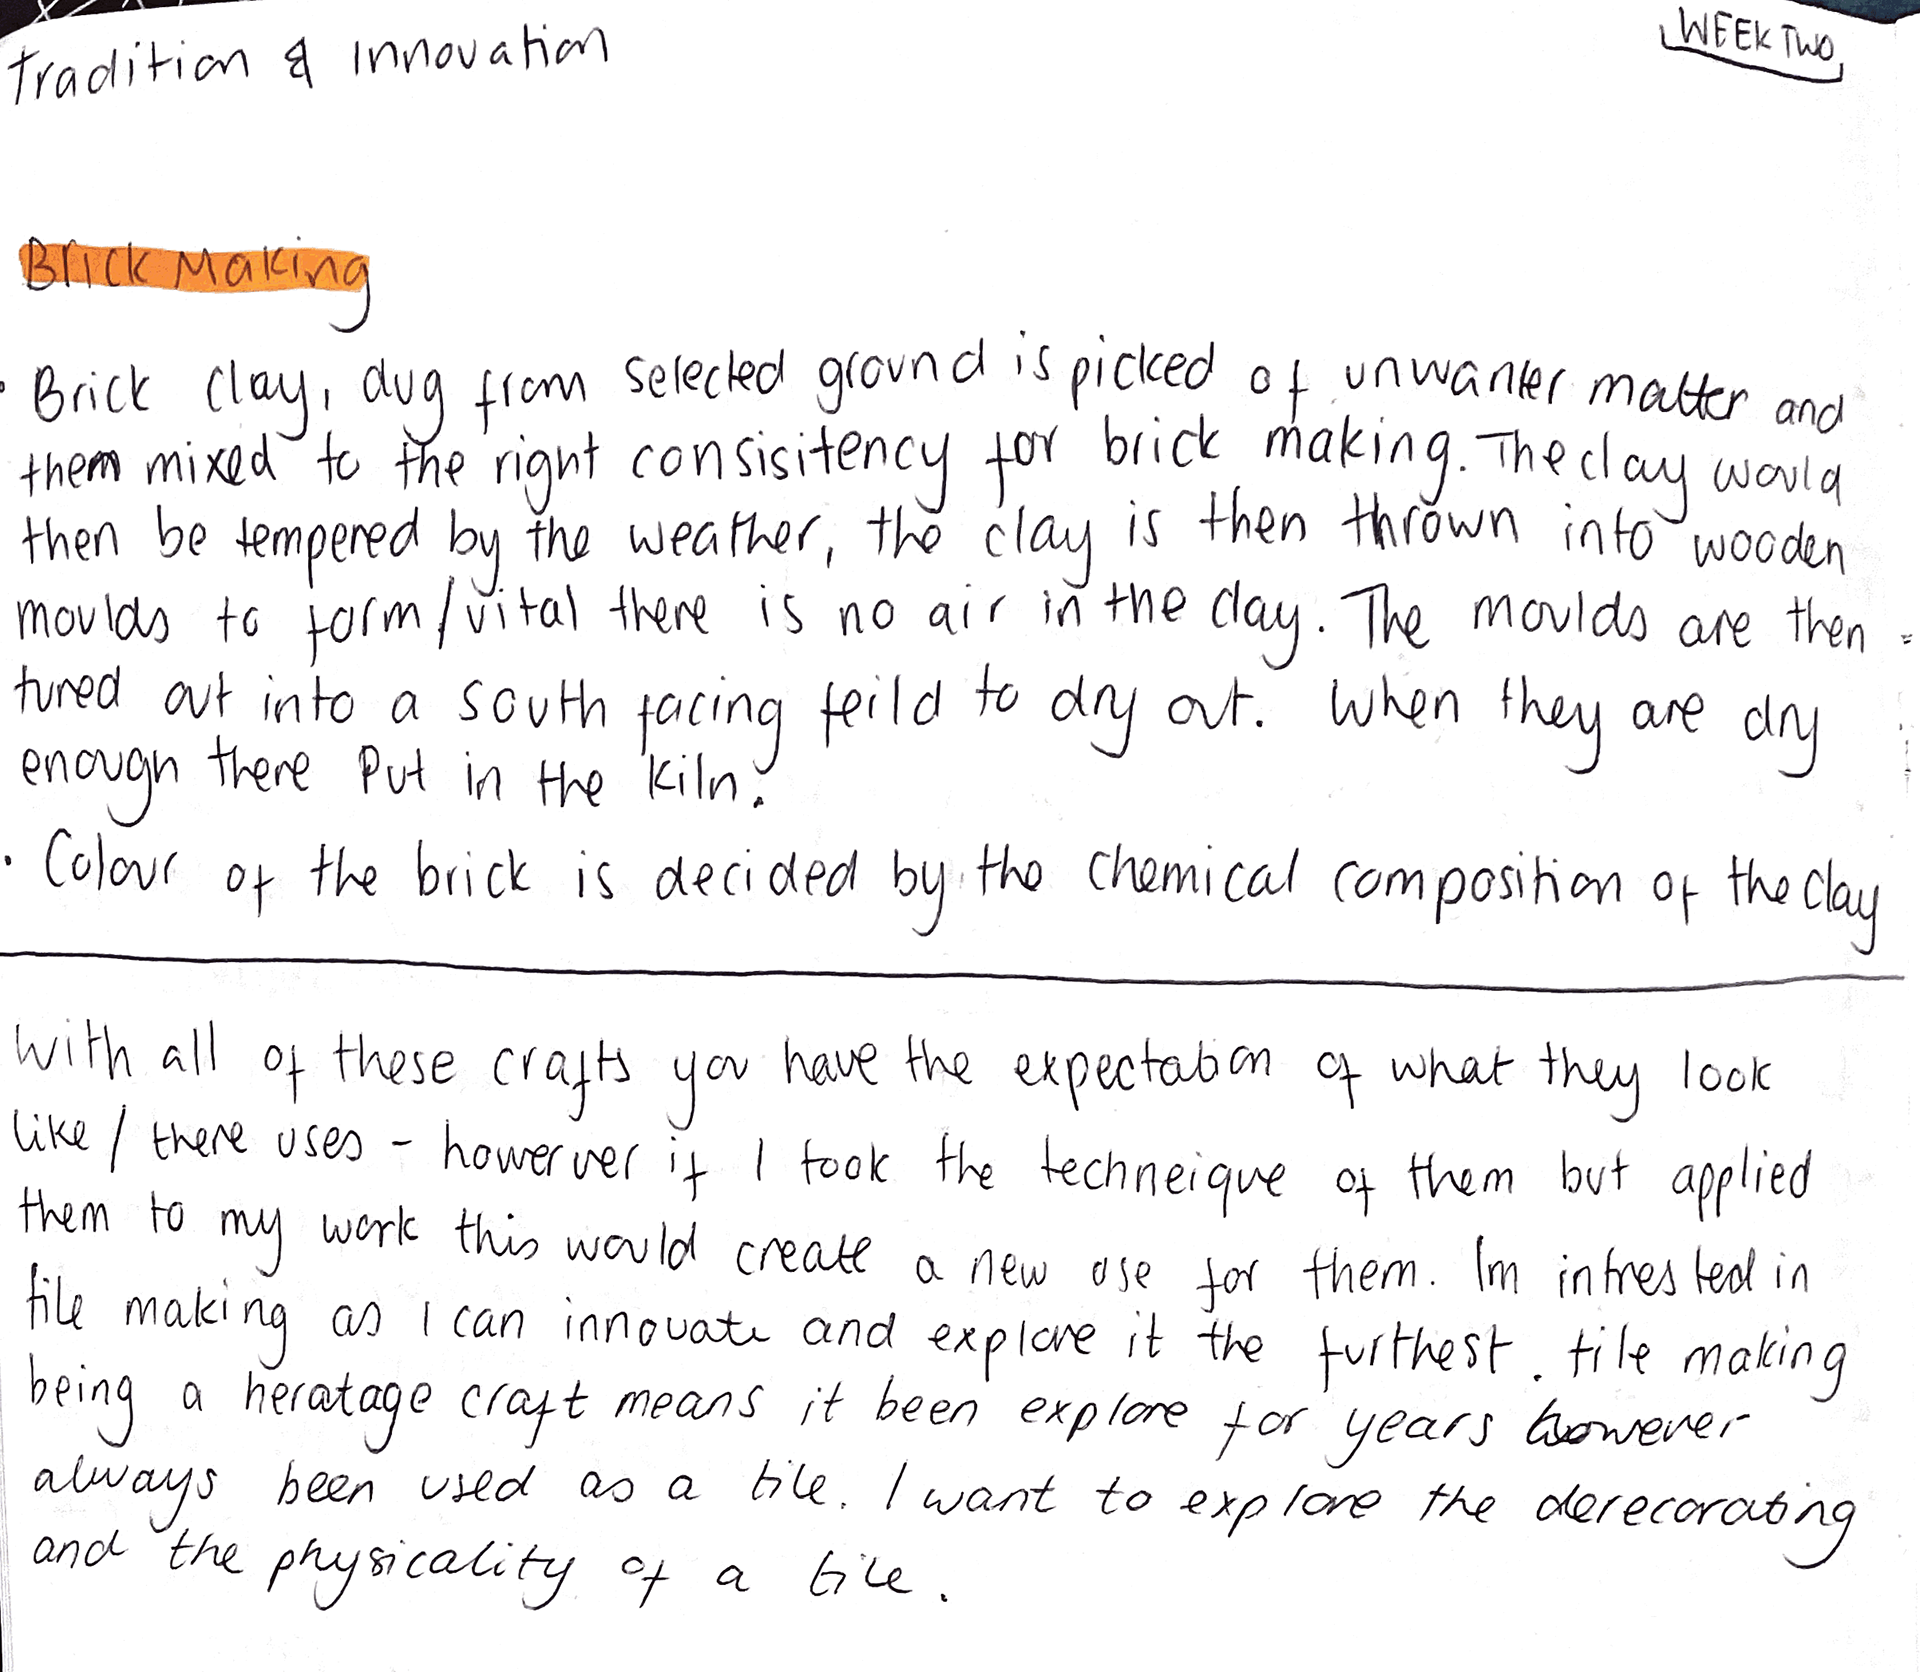 Tradition & Innovation
WEEK TWO
Brick Making
· Brick clay, dug from selected ground is picked of unwanter matter and
them mixed to the right consisitency for brick making. The clay would
then be tempered by the weather, the clay is then thrown into wooden
moulds to form/vital there is no air in the clay. The moulds are then
tured out into a south facing feild to dry out. When they are dry
enough there put in the kiln.
· Colour of the brick is decided by the chemical composition of the clay
With all of these crafts you have the expectation of what they look
like/there uses - howerver if I took the techneique of them but applied
them to my work this would create a new use for them. Im intrested in
tile making as I can innovate and explore it the furthest. tile making
being a heratage craft means it been explore for years however
always been used as a tile. I want to explore the derecorating
and the physicality of a tile.